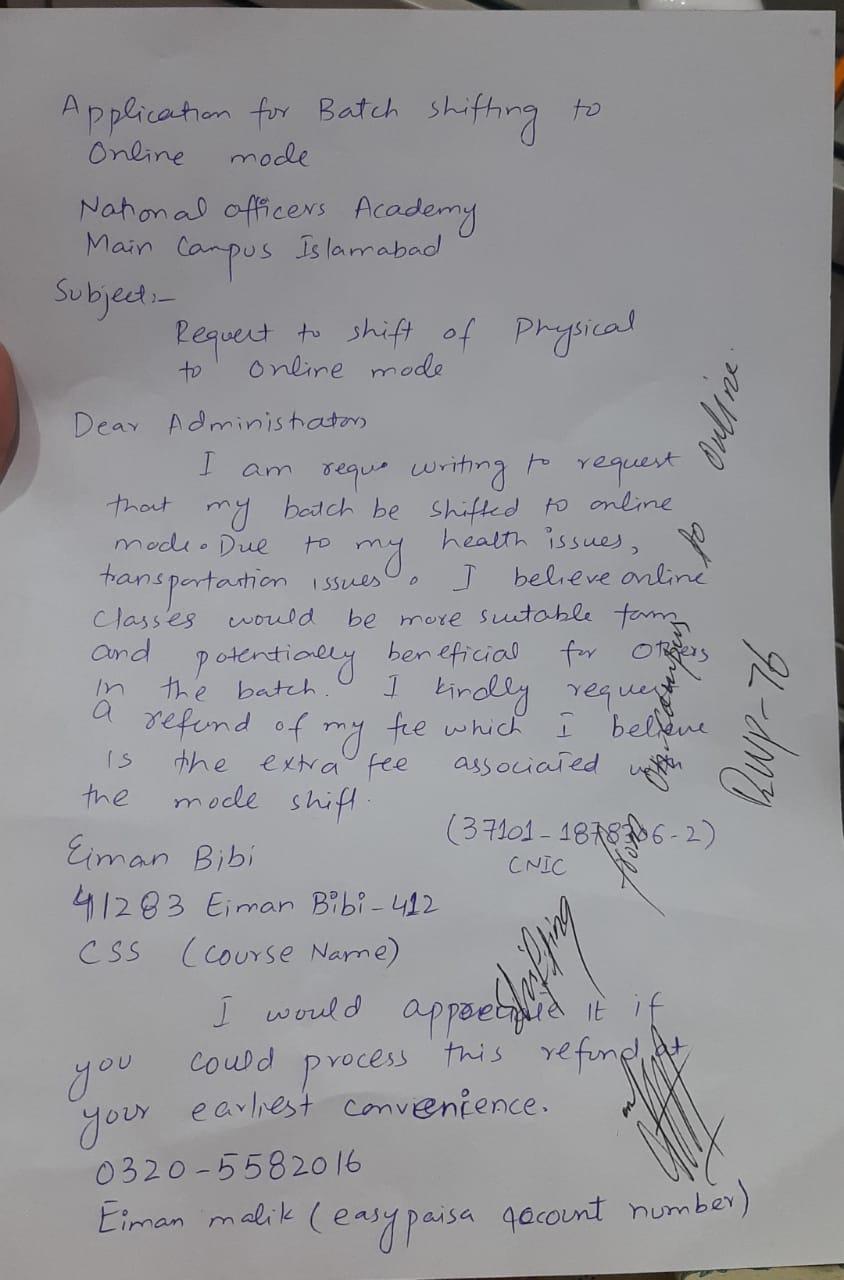 Application for Batch shifting to
Online mode
National officers Academy
Main Campus Islamabad
Subject:-
Request to shift of Physical
to online mode
Dear Administrator
I am reque writing to request
that my batch be shifted to online
mode. Due to my health issues,
transportation issues. I believe online
classes would be more suitable
and potentially beneficial for others
in the batch. I kindly request
a refund of my fee which I believe
is the extra fee associated
the mode shift.
(37101-1878306-2)
CNIC
Eiman Bibi
41283 Eiman Bibi-412
CSS (Course Name)
I would appreciate it if
you could process this refund at
your earliest convenience.
0320-5582016
Eiman malik (easypaisa account number)
Shifting from Campus to online.
RWP-76